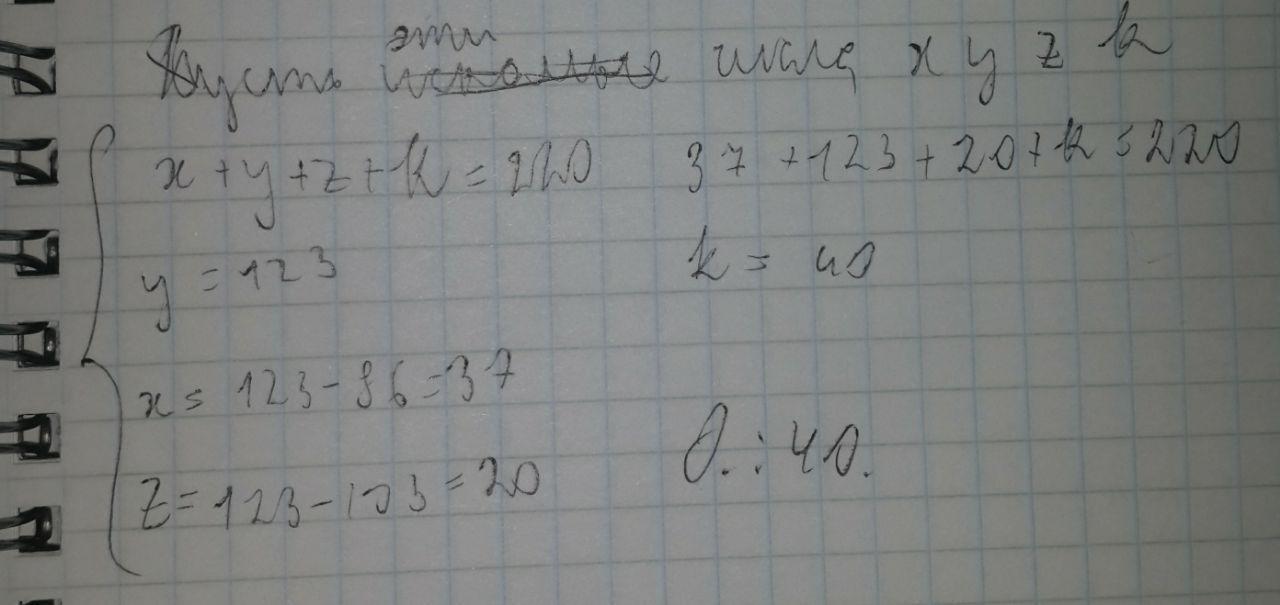 Пусть эти числа x y z k
x + y + z + k = 220
y = 123
x = 123 - 86 = 37
z = 123 - 103 = 20
37 + 123 + 20 + k = 220
k = 40
О.: 40.